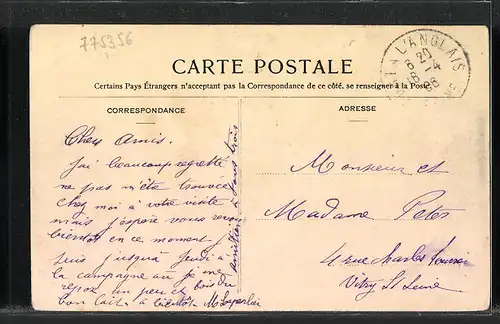 775356
L'ANGLAIS
20
6 - 14
CARTE POSTALE
Certains Pays Étrangers n'acceptant pas la Correspondance de ce côté, se renseigner à la Poste
CORRESPONDANCE
ADRESSE
Chers Amis.
J'ai beaucoup regretté
ne pas m'etre trouvée
chez moi à votre visite
mais j'espère vous revoir
bientot en ce moment je
suis jusqu'a jeudi à
la campagne où je me
repose un peu et bois du
bon lait. à bientôt
amitiés à tous trois
Monsieur et
Madame Peter
4 rue Charles
Vitry St Seine